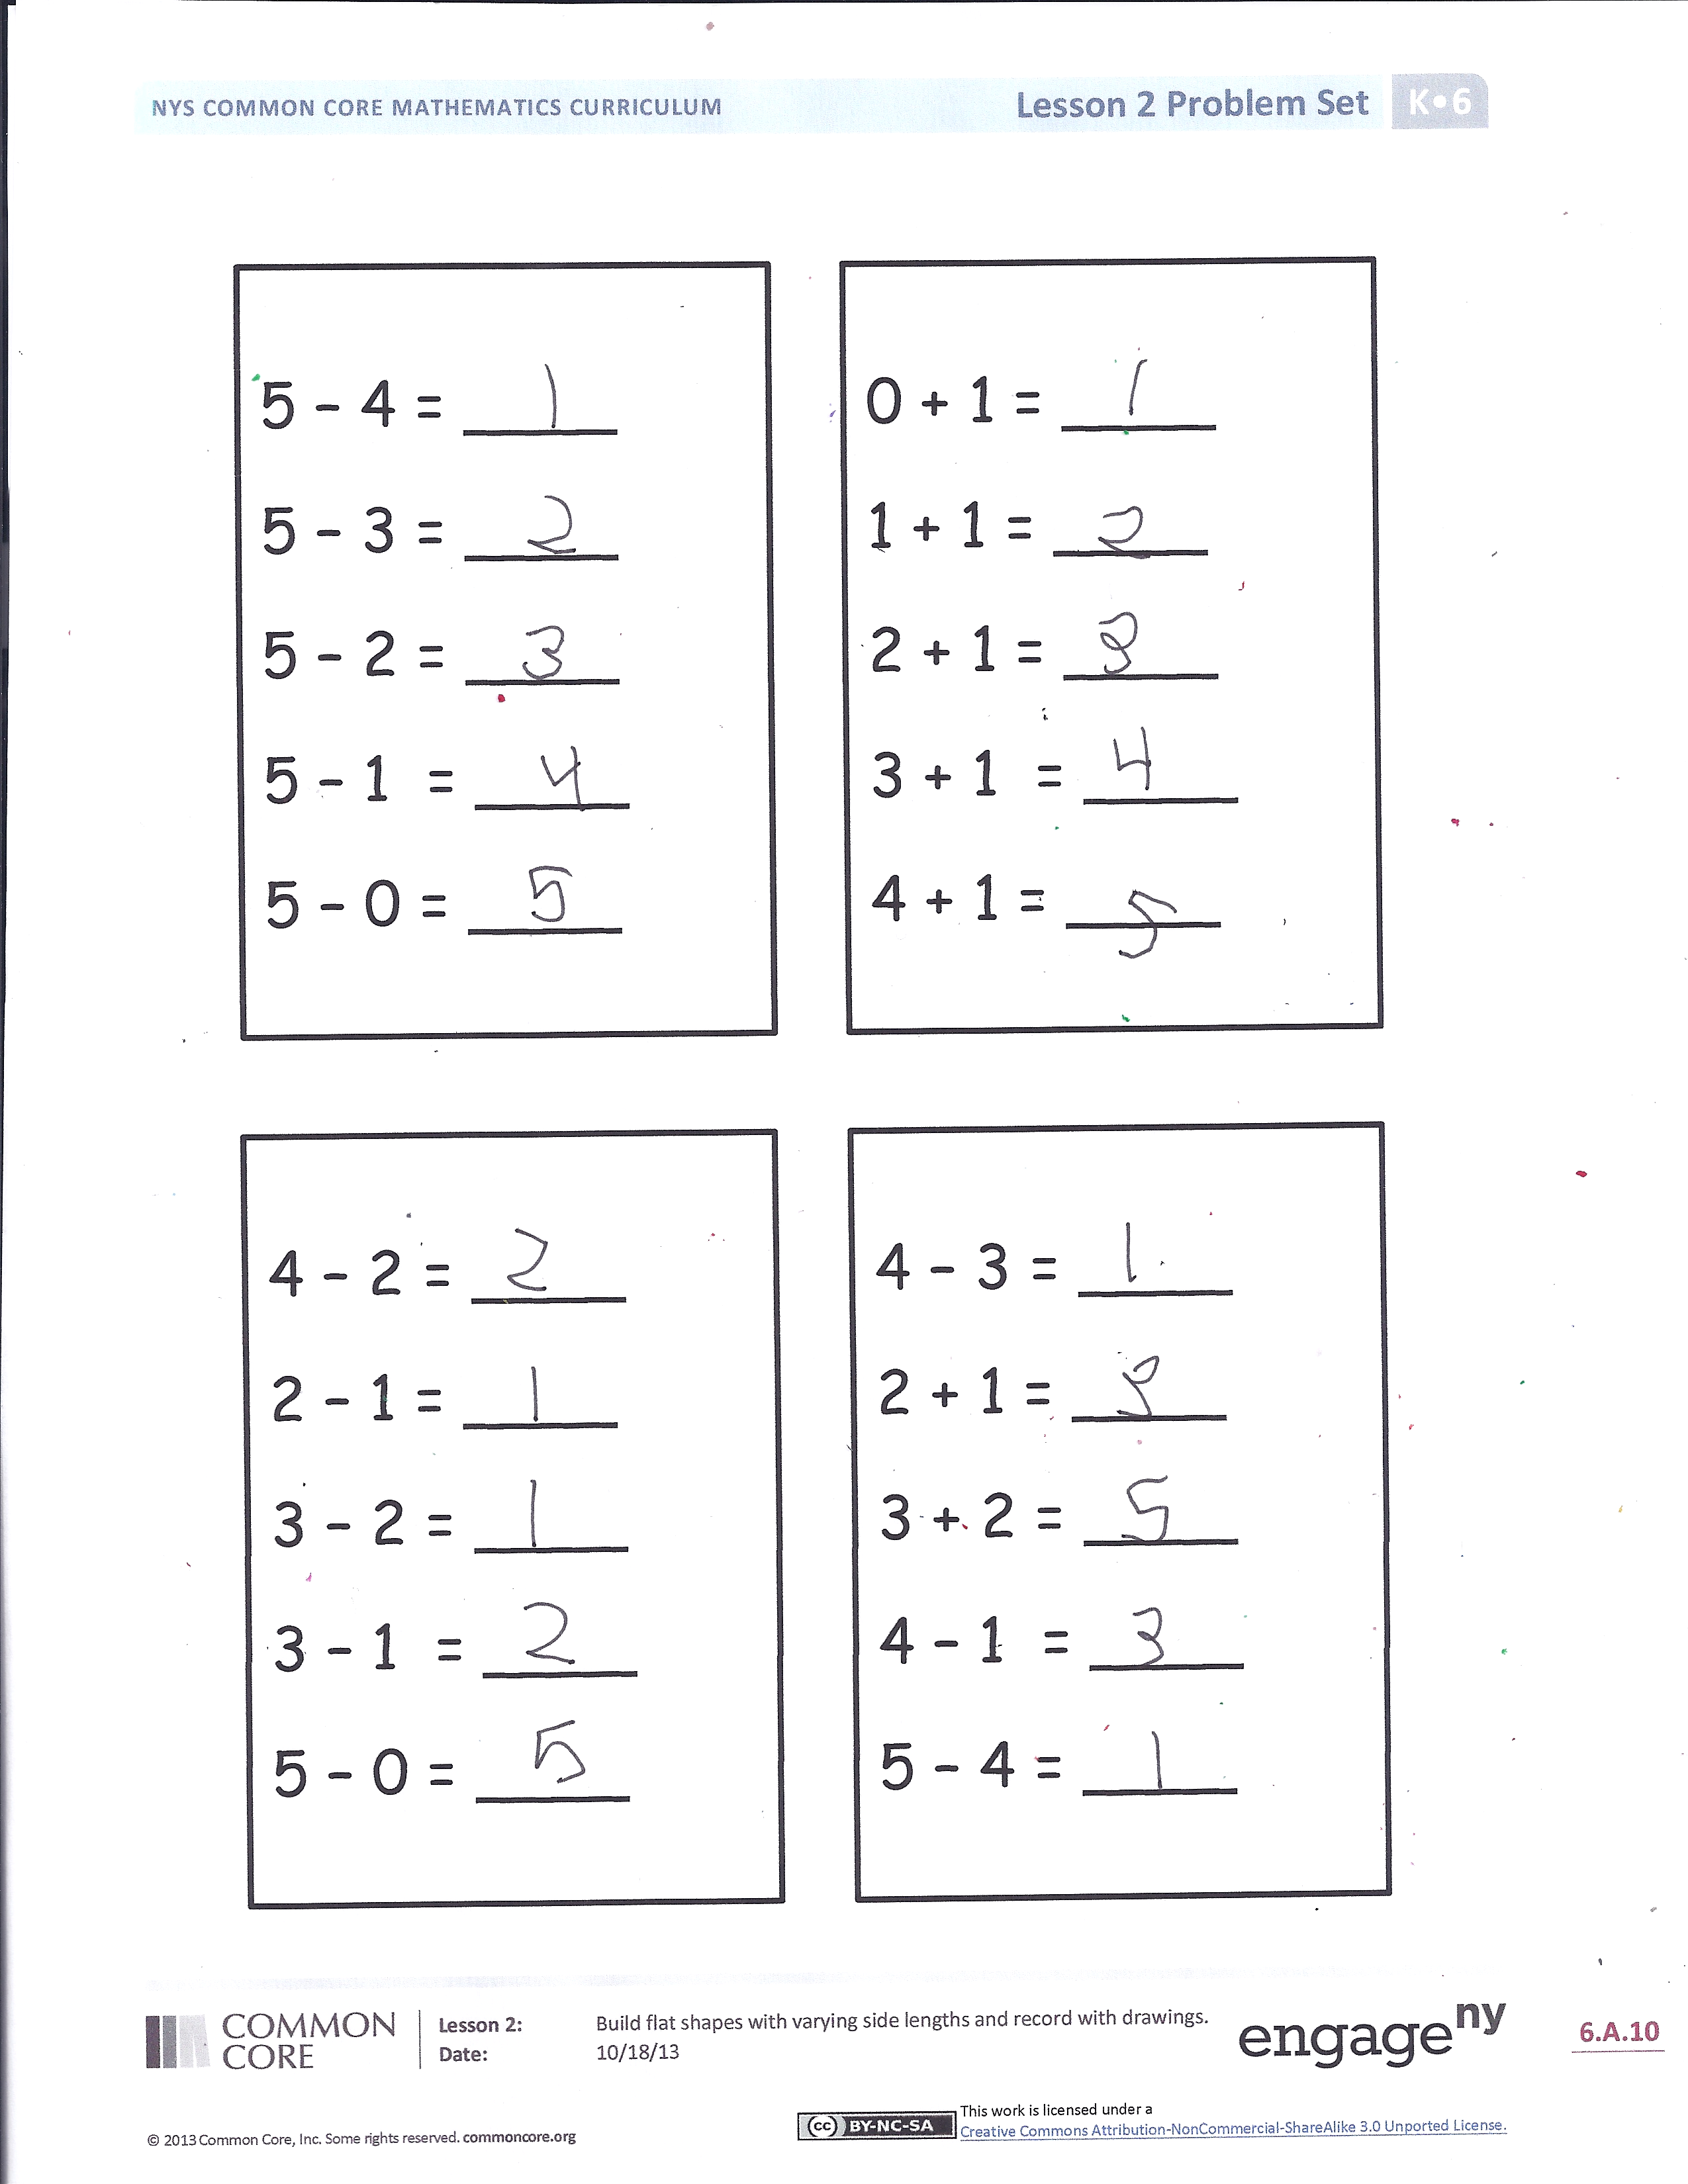 NYS COMMON CORE MATHEMATICS CURRICULUM
Lesson 2 Problem Set
K•6
5 - 4 = 1
5 - 3 = 2
5 - 2 = 3
5 - 1 = 4
5 - 0 = 5
0 + 1 = 1
1 + 1 = 2
2 + 1 = 3
3 + 1 = 4
4 + 1 = 5
4 - 2 = 2
2 - 1 = 1
3 - 2 = 1
3 - 1 = 2
5 - 0 = 5
4 - 3 = 1
2 + 1 = 3
3 + 2 = 5
4 - 1 = 3
5 - 4 = 1
COMMON
CORE
Lesson 2: Build flat shapes with varying side lengths and record with drawings.
Date: 10/18/13
engage ny
6.A.10
© 2013 Common Core, Inc. Some rights reserved. commoncore.org
(cc) BY-NC-SA
This work is licensed under a
Creative Commons Attribution-NonCommercial-ShareAlike 3.0 Unported License.